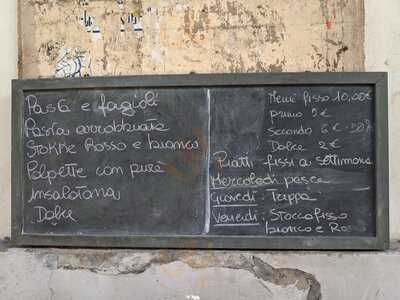 Pasta e fagioli
Pasta arrabbiata
Stokke Rosso e bianco
Polpette con purè
insalatona
Dolce
Menù fisso 10,00€
primo 5€
Secondo 6€
Dolce 2€
Piatti fissi a settimana
Mercoledì pesce
Giovedì: Trippa
Venerdì: Stoccafisso
bianco e Ro